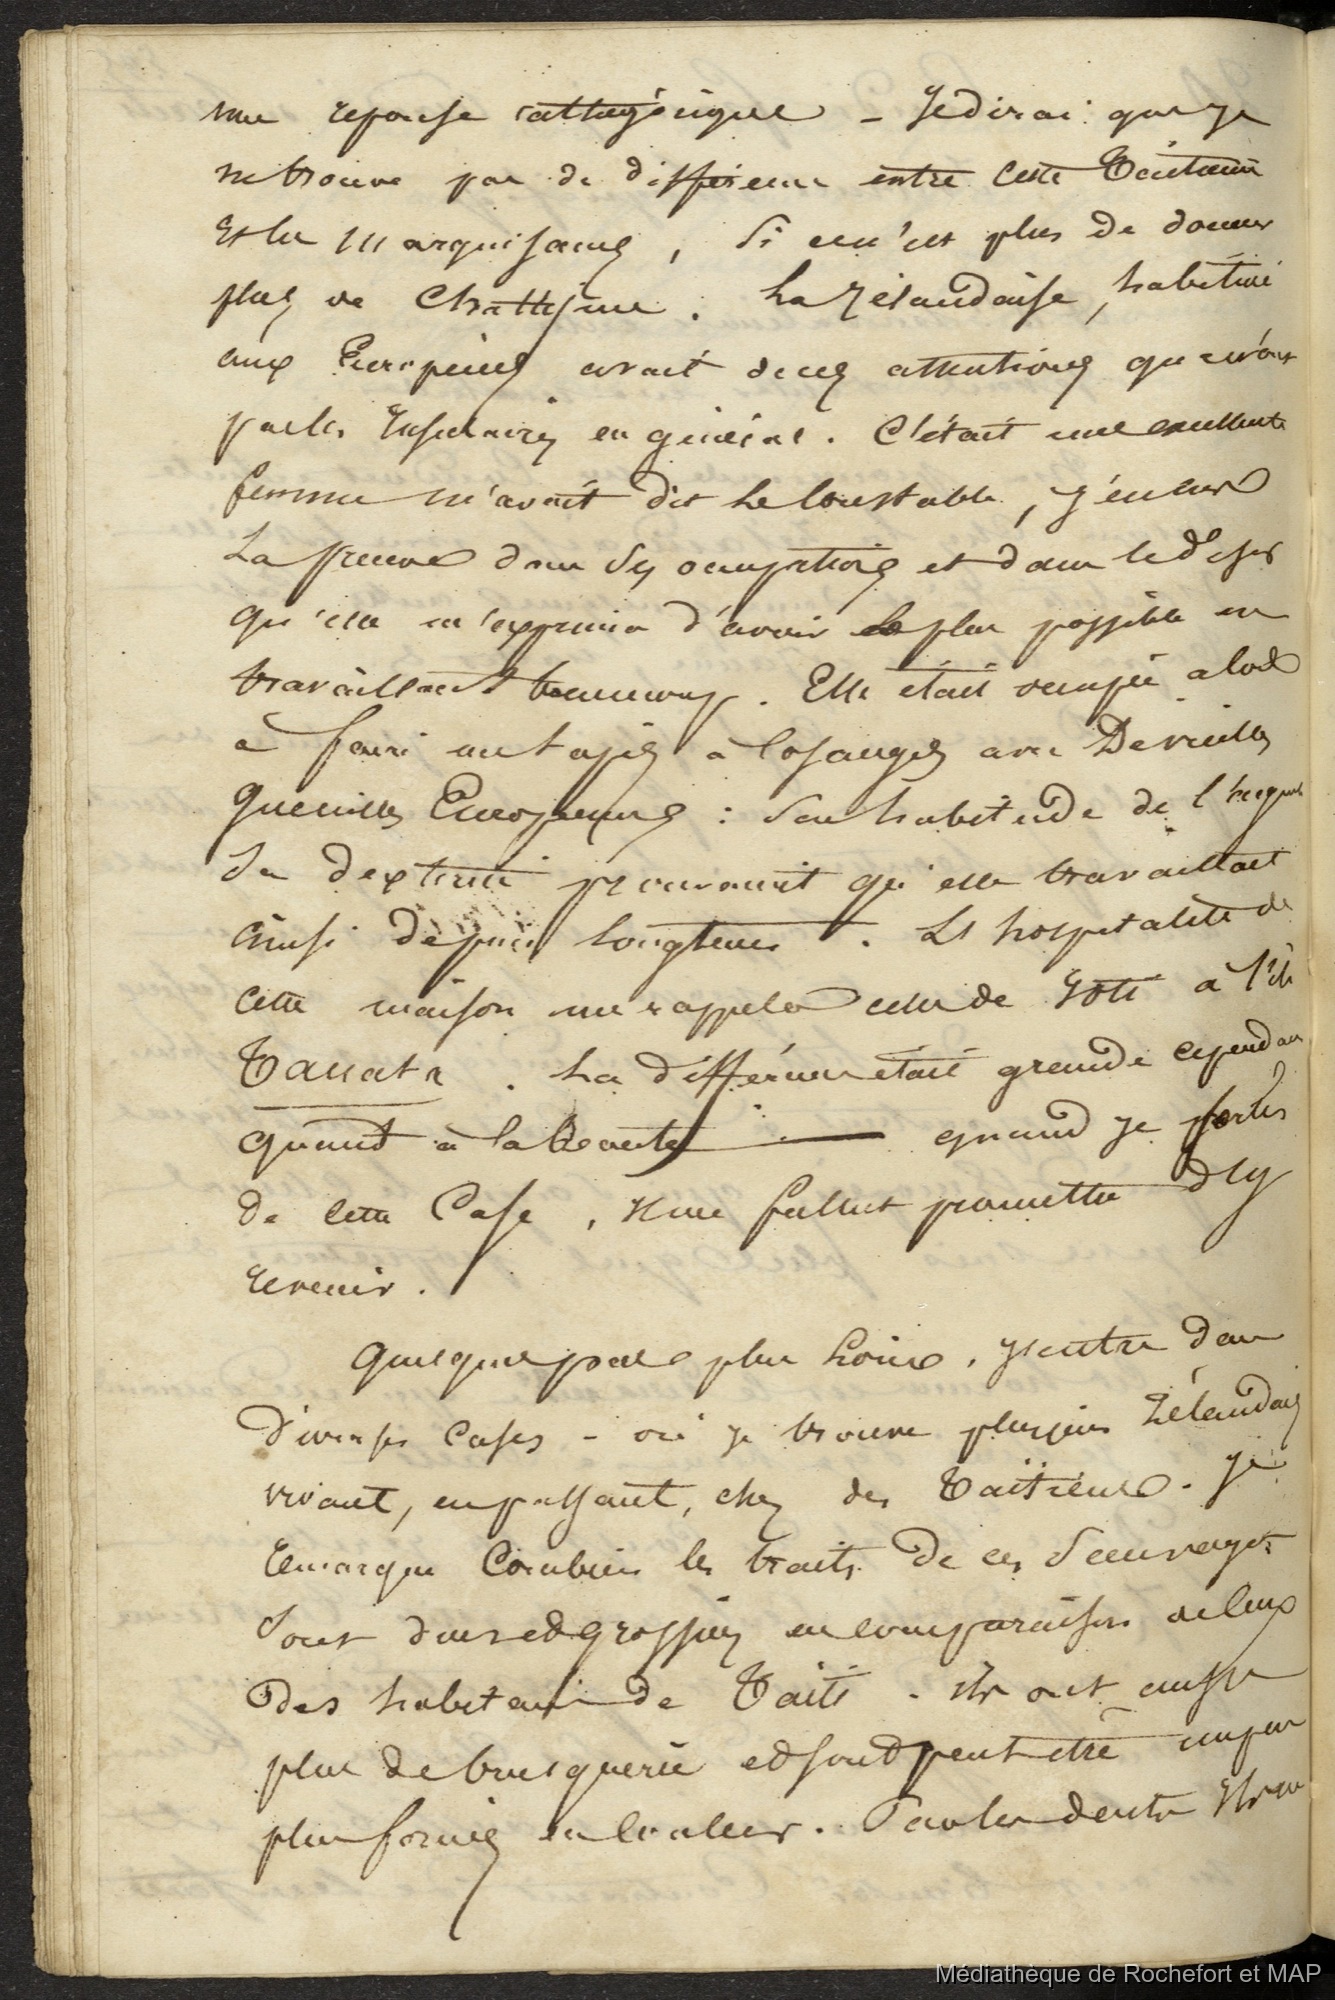 une reponse cathégorique _ Je dirai que je
ne trouve pas de différence entre cette Taïtienne
et les Marquisanes, si ce n'est plus de douceur
plus de . La Zélandaise, habituée
aux Européens avait de ces attentions que n'ont
pas les Insulaires en général. C'était une excellente
femme m'avait dit le Constable, j'en eus
la preuve dans ses occupations et dans le desir
qu'elle m'exprima d'avoir le plus possible en
travaillant beaucoup. Elle était occupée alors
à faire un tapis à losanges avec De vieilles
guenilles Européennes : Son habitude de l'aiguille
Sa dextérité prouvaient qu'elle travaillait
ainsi depuis longtems. L'hospitalité de
cette maison me rappela celle de à l'île
. La différence était grande cependant
quant à la Beauté — quand je sortis
de cette Case, il me fallut promettre d'y
revenir.
Quelques pas plus loin, j'entre dans
diverses Cases - où je trouve plusieurs Zélandais
vivant, en passant, chez des Taïtiens. Je
remarque Combien les traits de ces Sauvages
sont durs et grossiers en comparaison de ceux
des habitans de Taïti. ils ont aussi
plus de brusquerie et sont peut etre un peu
plus foncés en couleur.
Médiathèque de Rochefort et MAP